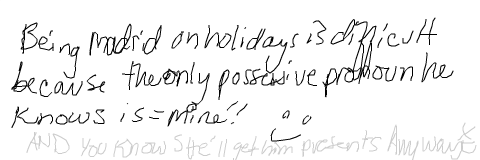 Being madrid on holidays is difficult
because the only possessive pronoun he
knows is = mine!!
AND You know she'll get him presents Anyways